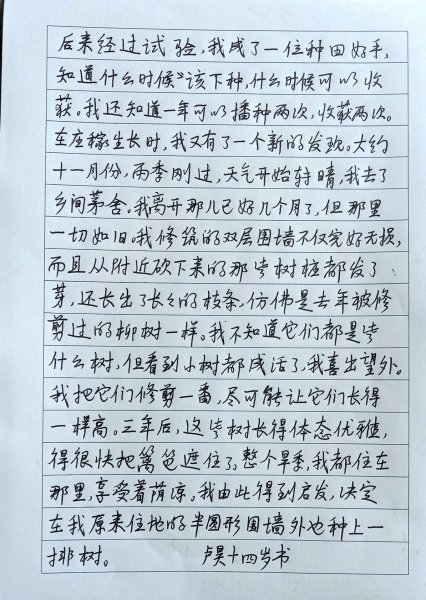 后来经过试验,我成了一位种田好手,
知道什么时候该下种,什么时候可以收
获。我还知道一年可以播种两次,收获两次。
在庄稼生长时,我又有了一个新的发现。大约
十一月份,雨季刚过,天气开始转晴,我去了
乡间茅舍。我离开那儿已好几个月了,但那里
一切如旧。我修筑的双层围墙不仅完好无损,
而且从附近砍下来的那些树桩都发了
芽,还长出了长长的枝条,仿佛是去年被修
剪过的柳树一样。我不知道它们都是些
什么树,但看到小树都成活了,我喜出望外。
我把它们修剪一番,尽可能让它们长得
一样高。三年后,这些树长得体态优雅,
得很快把篱笆遮住了。整个旱季,我都住在
那里,享受着荫凉。我由此得到启发,决定
在我原来住地的半圆形围墙外也种上一
排树。 卢昊十四岁书